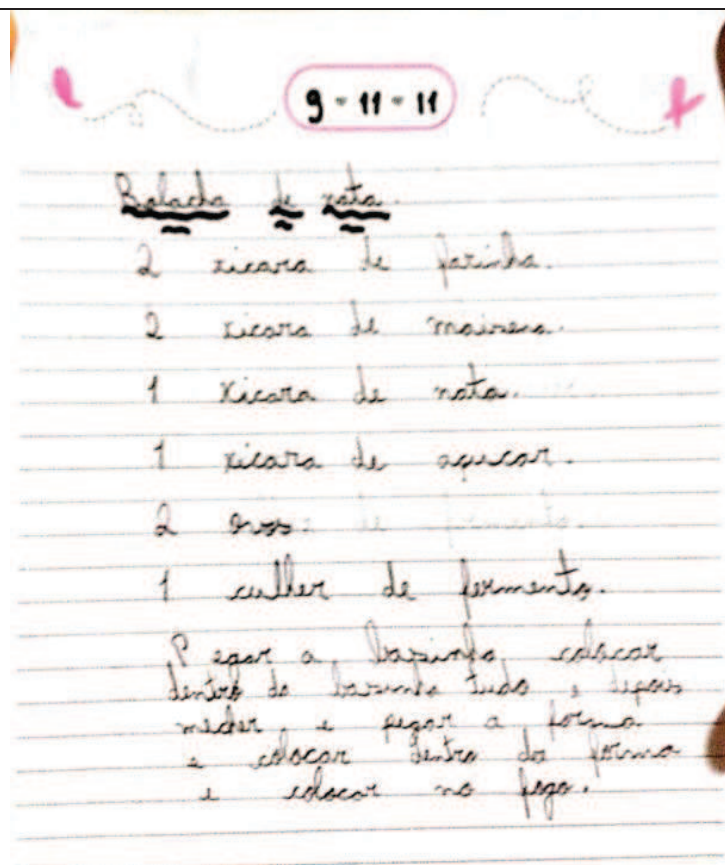 9-11-11
Bolacha de nata.
2 xicara de farinha.
2 xicara de maizena.
1 Xicara de nata.
1 xicara de açucar.
2 ovos:
1 culher de fermento.
Pegar a basinha colocar
dentro da basinha tudo e depois
mecher, e pegar a forma
e colocar dentro da forma
e colocar no fogo.